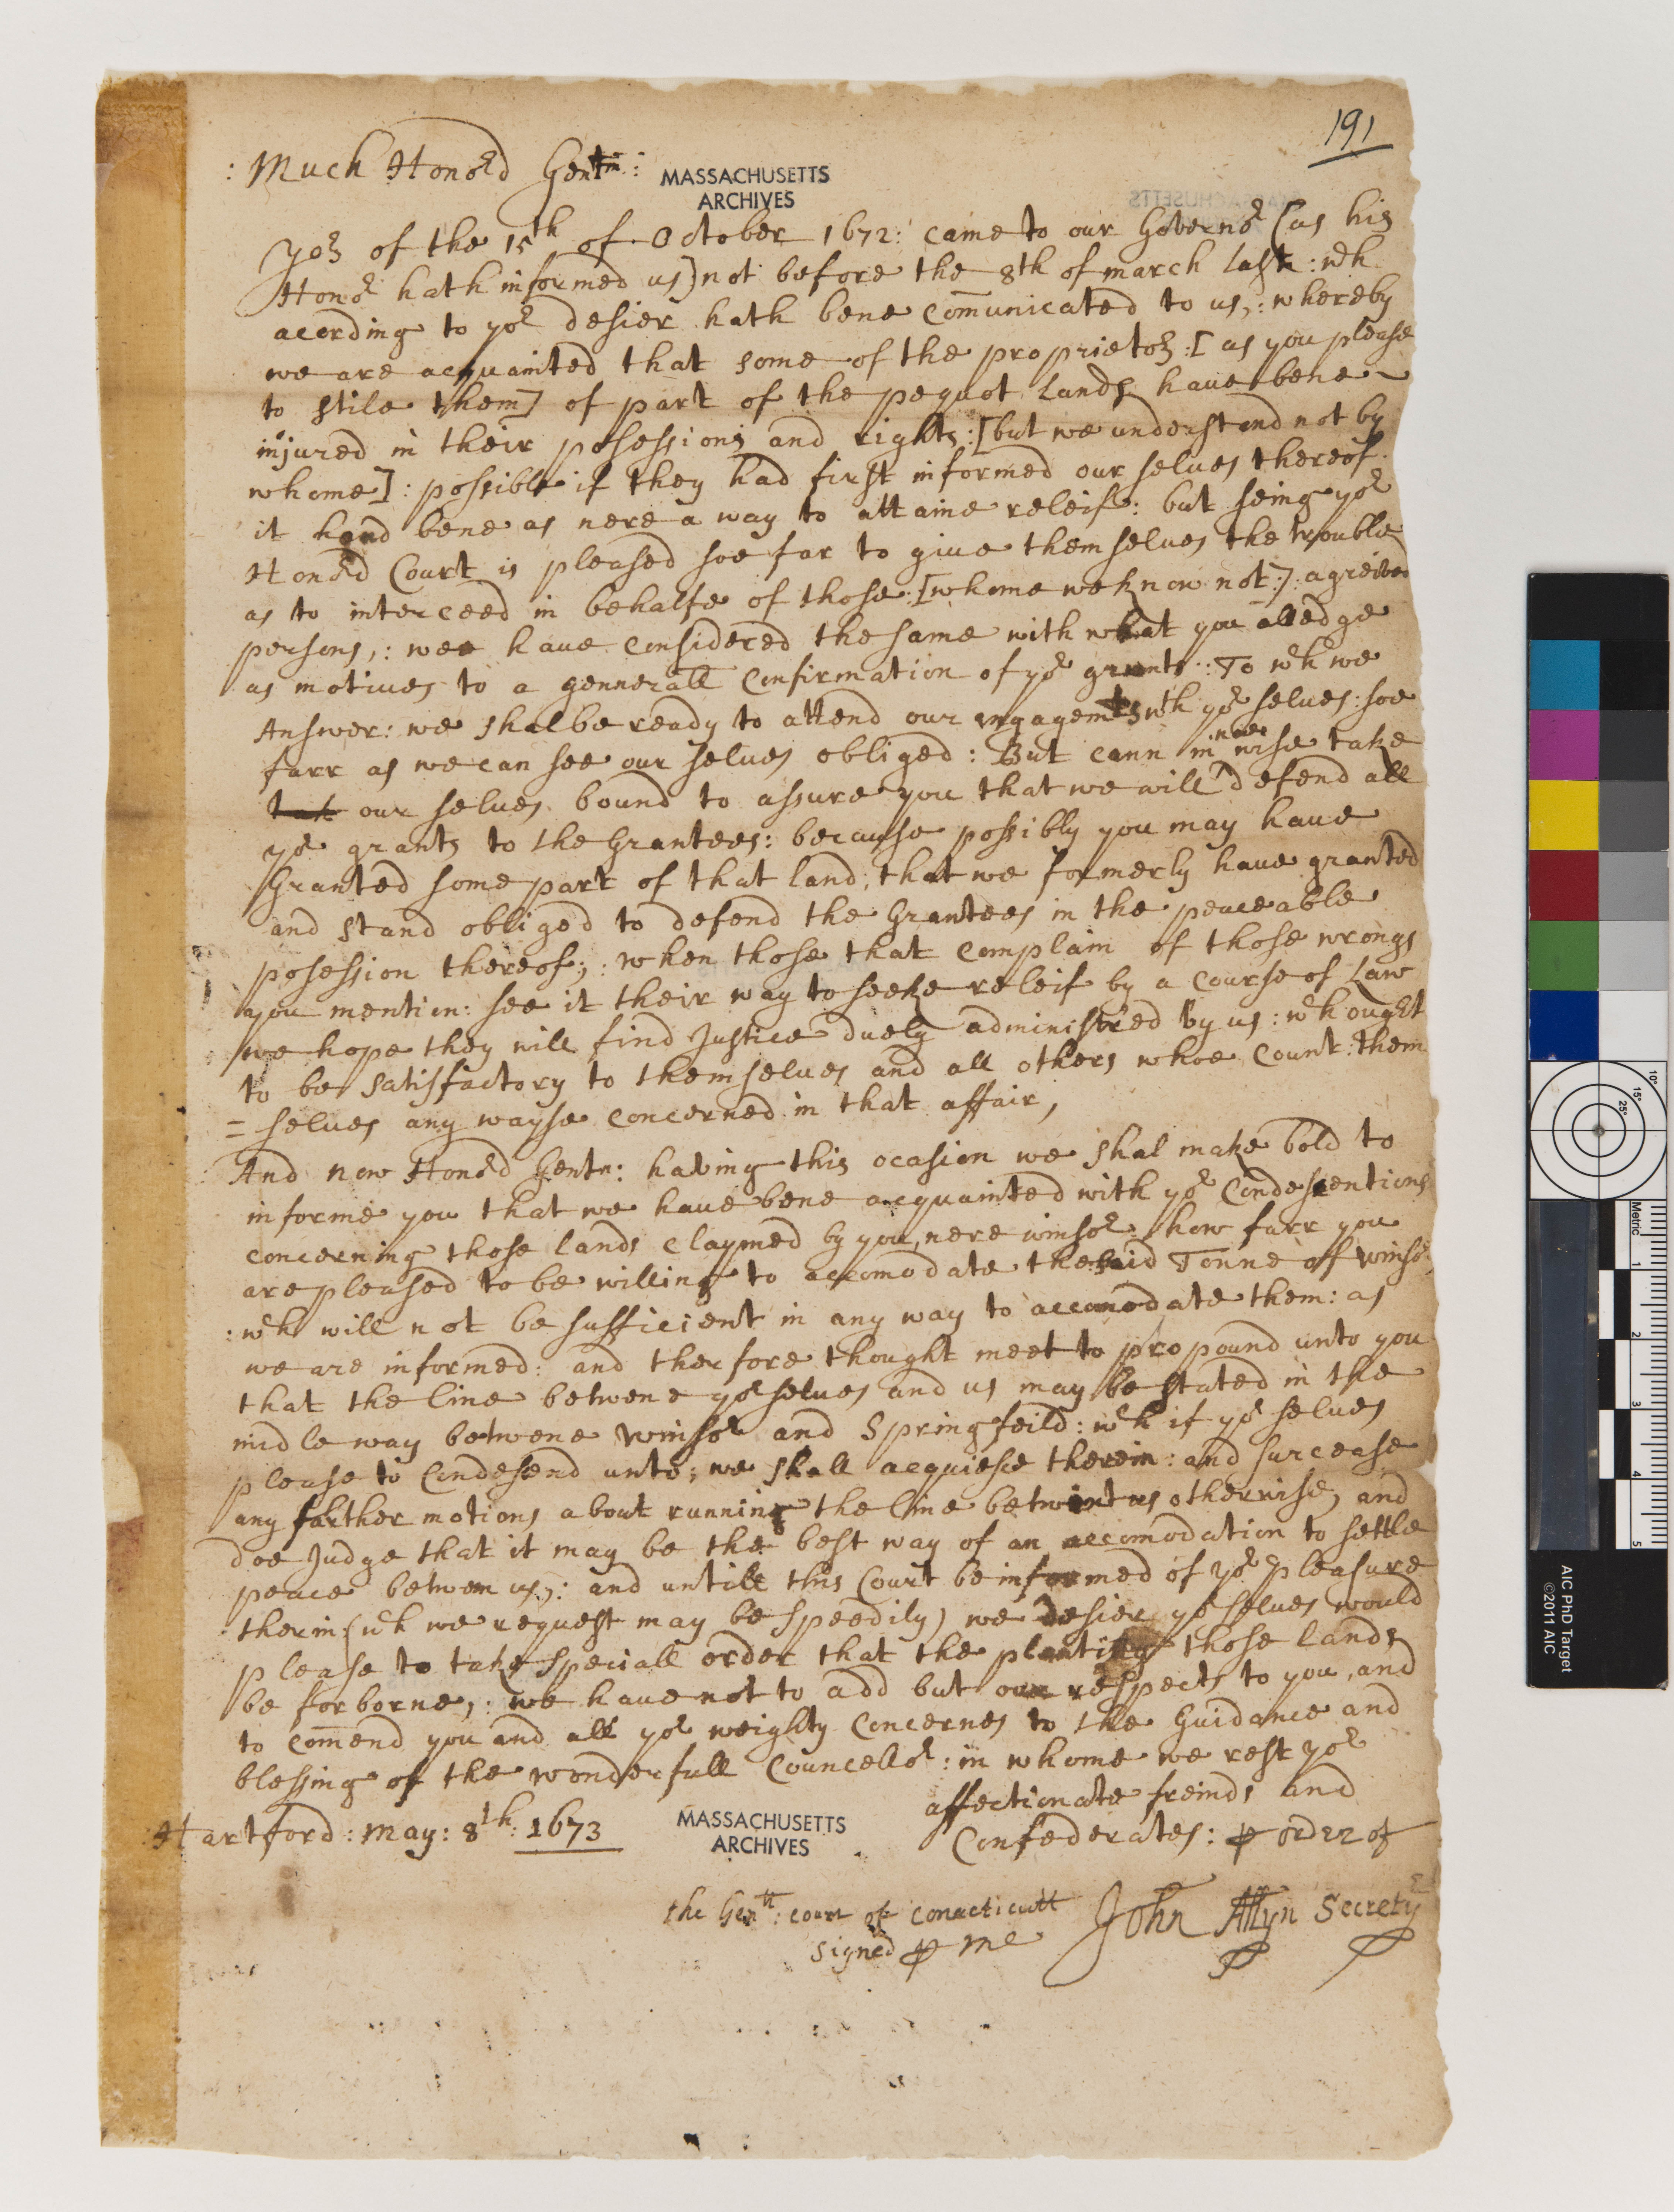 191
: Much Honord Gentm :
MASSACHUSETTS
ARCHIVES
yors of the 15th of October 1672: came to our Governor (as his
Honor hath informed us) not before the 8th of march last: wch
acording to yor desier hath bene comunicated to us,: whereby
we are acquainted that some of the proprietors: [as you please
to stile them] of part of the pequot Lands have bene
injured in their posessions and rights: [but we understand not by
whome]: possible if they had first informed our selves thereof.
it haad bene as nere a way to attaine releife: but seing yor
Honord Court is pleased soe far to give themselves the trouble
as to interceed in behalfe of those: [whome we know not:] agreived
persons,: wee have considered the same with what you alledge
as motives to a gennerall Confirmation of yor grants: To wch we
Answer: we shal be ready to attend our engagemts wth yor selves: soe
farr as we can see our selves obliged: But cann in noe wise take
tak our selves bound to assure you that we will defend all
yor grants to the Grantees: because possibly you may have
Granted some part of that land, that we formerly have granted
and stand obliged to defend the Grantees in the peaceable
posession thereof;: when those that complain of those wrongs
you mention: see it their way to seeke releif by a course of Law
we hope they will find Justice duely administred by us: wch ought
to be satisfactory to themselves and all others whoe Count: them
= selves any wayse concerned in that affair,
And now Honord Gentn: having this ocasion we shal make bold to
informe you that we have bene acquainted with yor Condescentions
concerning those lands claymed by you, nere winsor: how farr you
are pleased to be willing to accomodate the said Towne of winsor
: wch will not be sufficient in any way to accomodate them: as
we are informed: and therfore thought meet to propound unto you
that the line betwene yor selves and us may be stated in the
midle way betwene winsor and Springfeild: wch if yor selves
please to Condesend unto; we shall acquiesce therein: and surcease
any farther motions about running the line betwixt us otherwise, and
doe Judge that it may be the best way of an accomodation to settle
peace betwen us,: and untill this Court be informed of yor pleasure
therin (wch we request may be speedily) we desier yor selves would
please to take speciall order that the planting those lands
be forborne,: we have not to add but our respects to you, and
to comend you and all yor weighty Concernes to the Guidance and
blessing of the wonderfull Councellor: in whome we rest yor
affectionate freinds and
Hartford: may: 8th: 1673
MASSACHUSETTS
ARCHIVES
Confederates: p order of
the Genll: court of Conecticutt
signed p me John Allyn Secrety
10°
15°
25°
Metric
1
2
3
4
5
AIC PhD Target
©2011 AIC